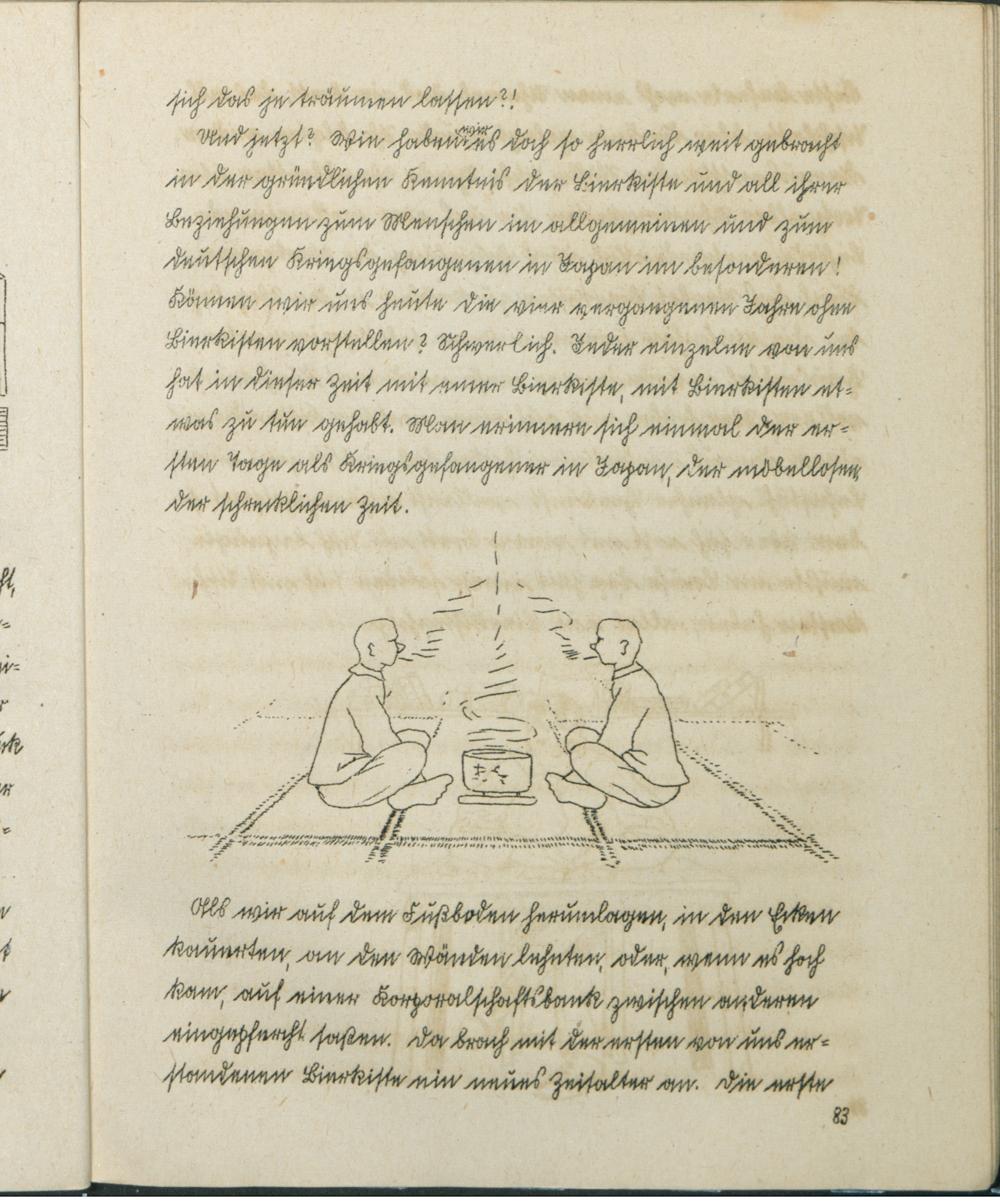 sich das je träumen lassen?!
Und jetzt? Wie haben wir es doch so herrlich weit gebracht
in der gründlichen Kenntnis der Bierkiste und all ihrer
Beziehungen zum Menschen im allgemeinen und zum
deutschen Kriegsgefangenen in Japan im besonderen!
Können wir uns heute die vier vergangenen Jahre ohne
Bierkisten vorstellen? Schwerlich. Jeder einzelne von uns
hat in dieser Zeit mit einer Bierkiste, mit Bierkisten et=
was zu tun gehabt. Man erinnere sich einmal der er=
sten Tage als Kriegsgefangener in Japan, der möbellosen,
der schrecklichen Zeit.
Als wir auf dem Fußboden herumlagen, in den Ecken
kauerten, an den Wänden lehnten, oder, wenn es hoch
kam, auf einer Korporalschaftsbank zwischen anderen
eingepfercht saßen. Da brach mit der ersten von uns er=
standenen Bierkiste ein neues Zeitalter an. Die erste
83